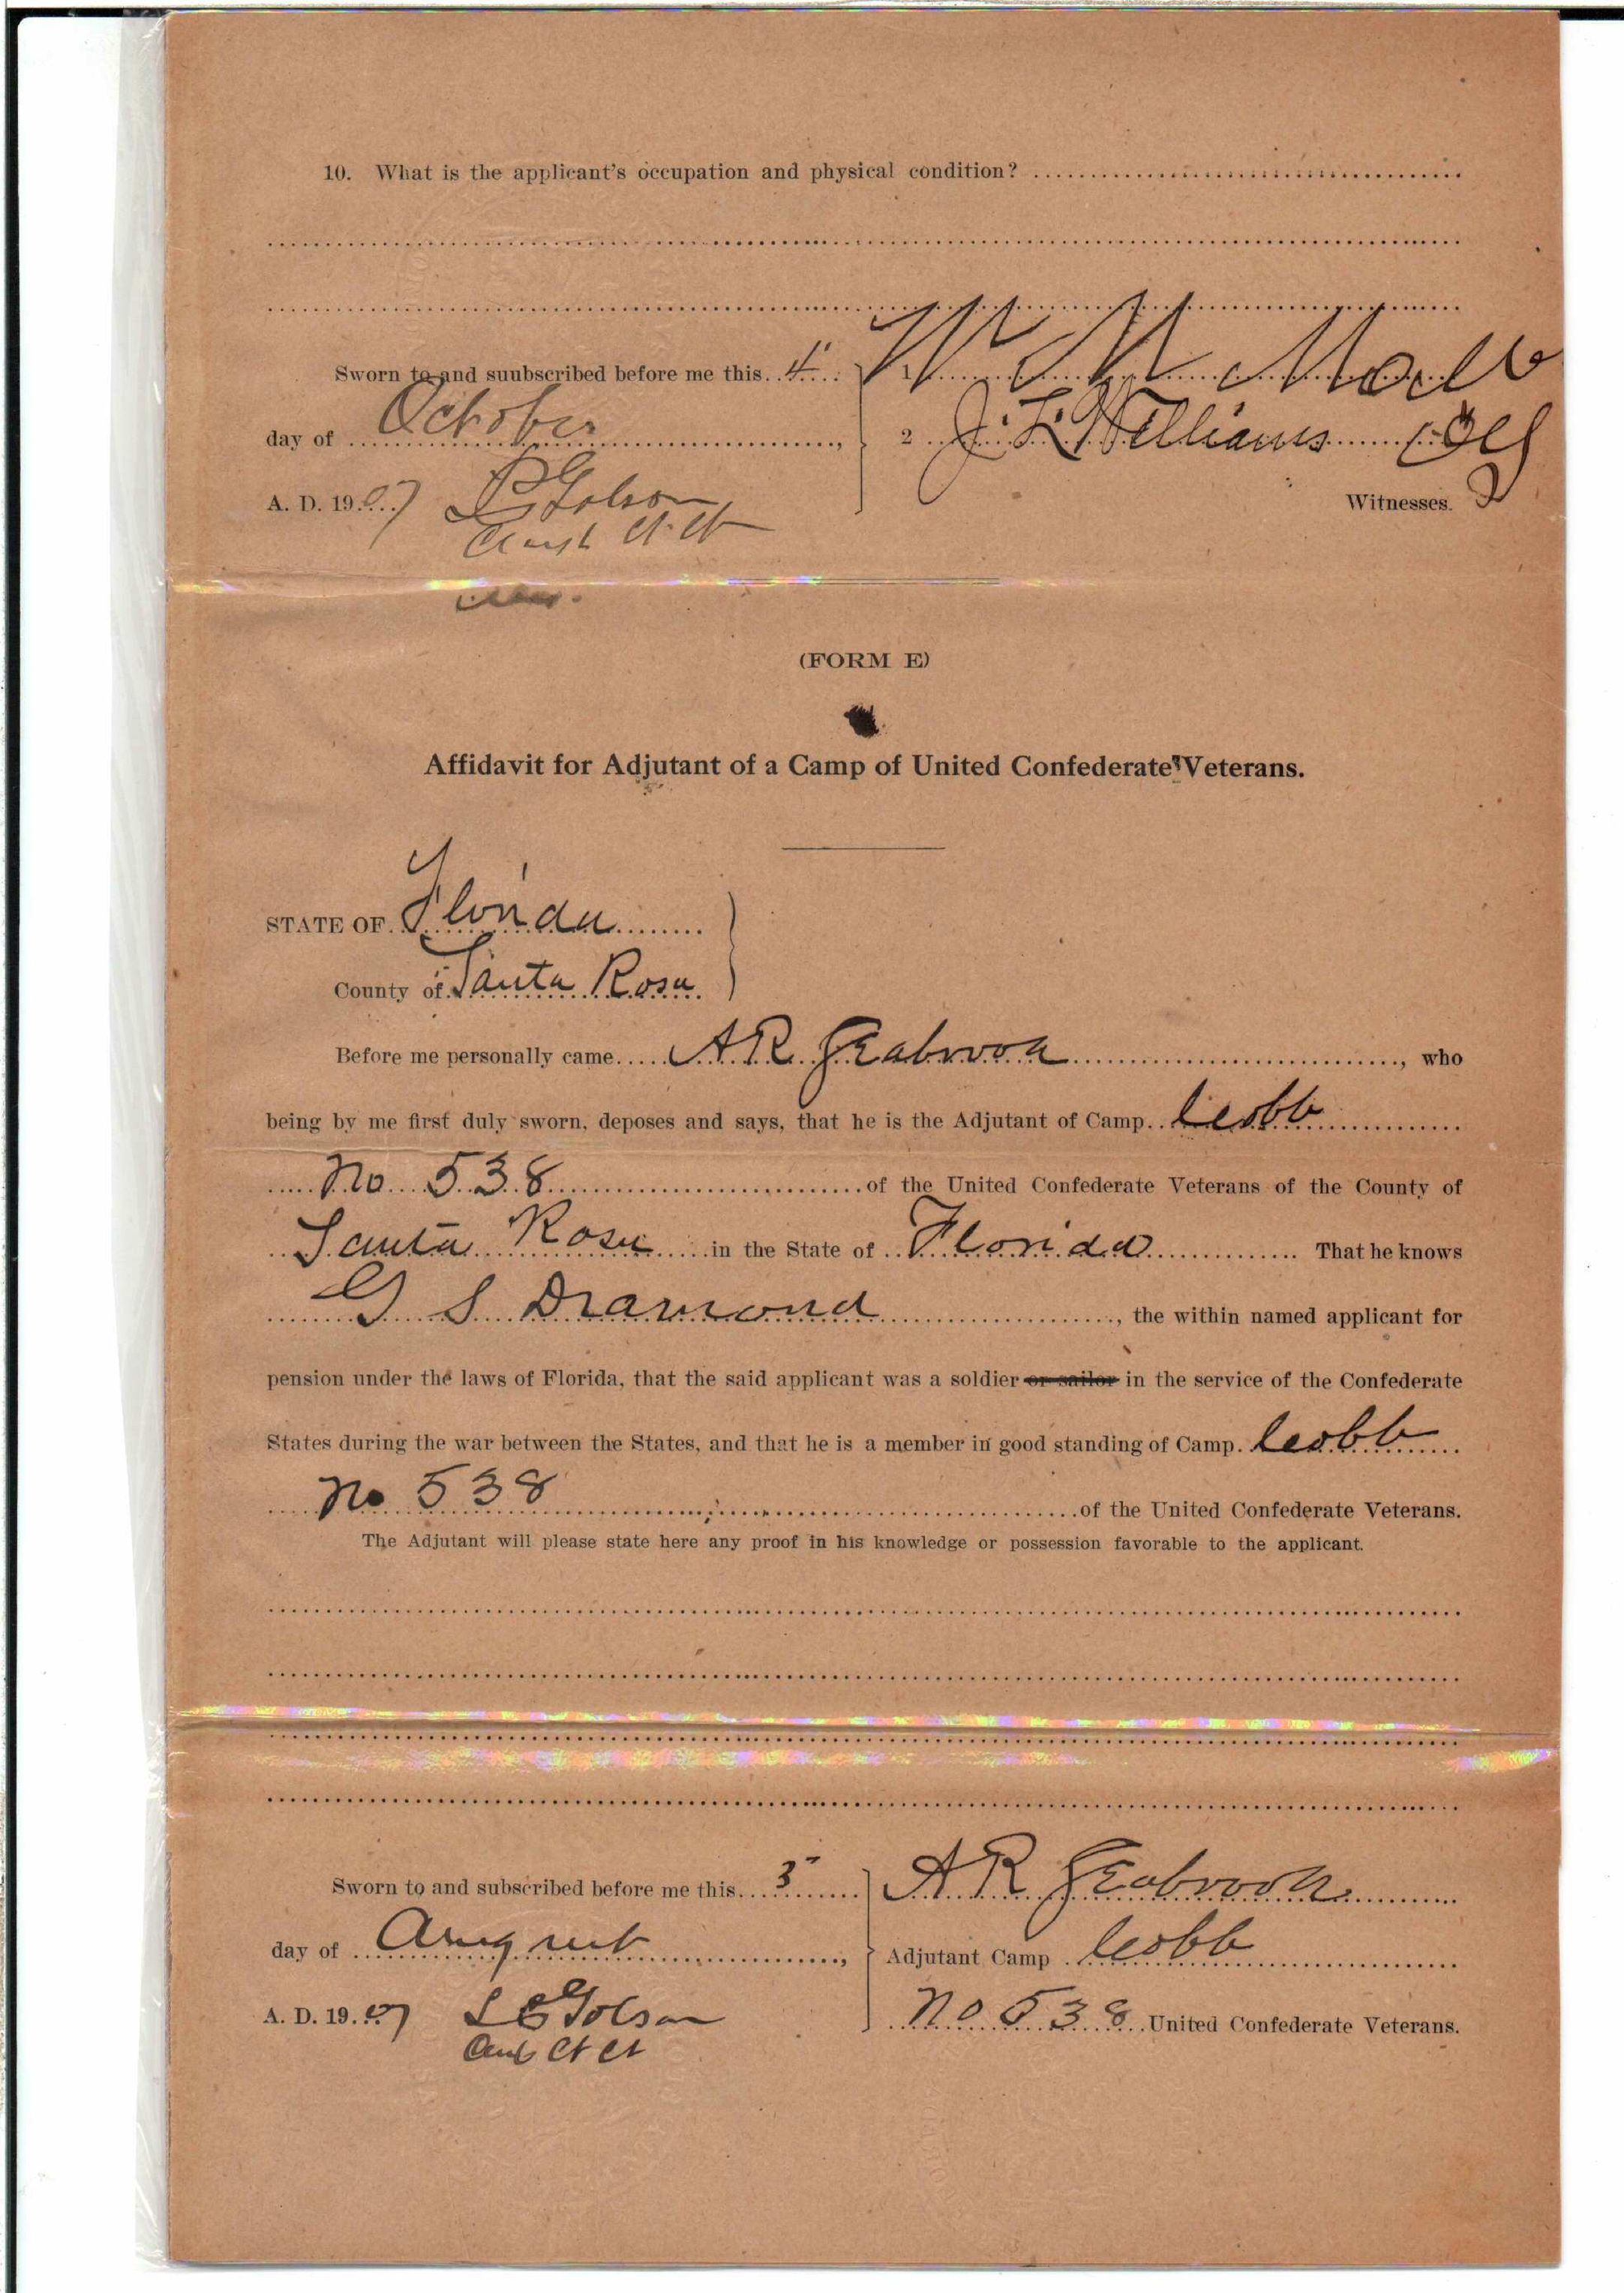 10. What is the applicant's occupation and physical condition?
Sworn to and suubscribed before me this 4
day of October,
A. D. 1907
1
2 J. L. Williams
Witnesses.
L C Golson
(FORM E)
Affidavit for Adjutant of a Camp of United Confederate Veterans.
STATE OF Florida
County of Santa Rosa
Before me personally came A R Seabrook, who
being by me first duly sworn, deposes and says, that he is the Adjutant of Camp Cobb
No 538 of the United Confederate Veterans of the County of
Santa Rosa in the State of Florida That he knows
G S Dramond, the within named applicant for
pension under the laws of Florida, that the said applicant was a soldier or sailor in the service of the Confederate
States during the war between the States, and that he is a member in good standing of Camp Cobb
No 538 of the United Confederate Veterans.
The Adjutant will please state here any proof in his knowledge or possession favorable to the applicant.
Sworn to and subscribed before me this 3
day of August,
A. D. 1907
L C Golson
Clk Ct Ct
A R Seabrook
Adjutant Camp Cobb
No 538 United Confederate Veterans.